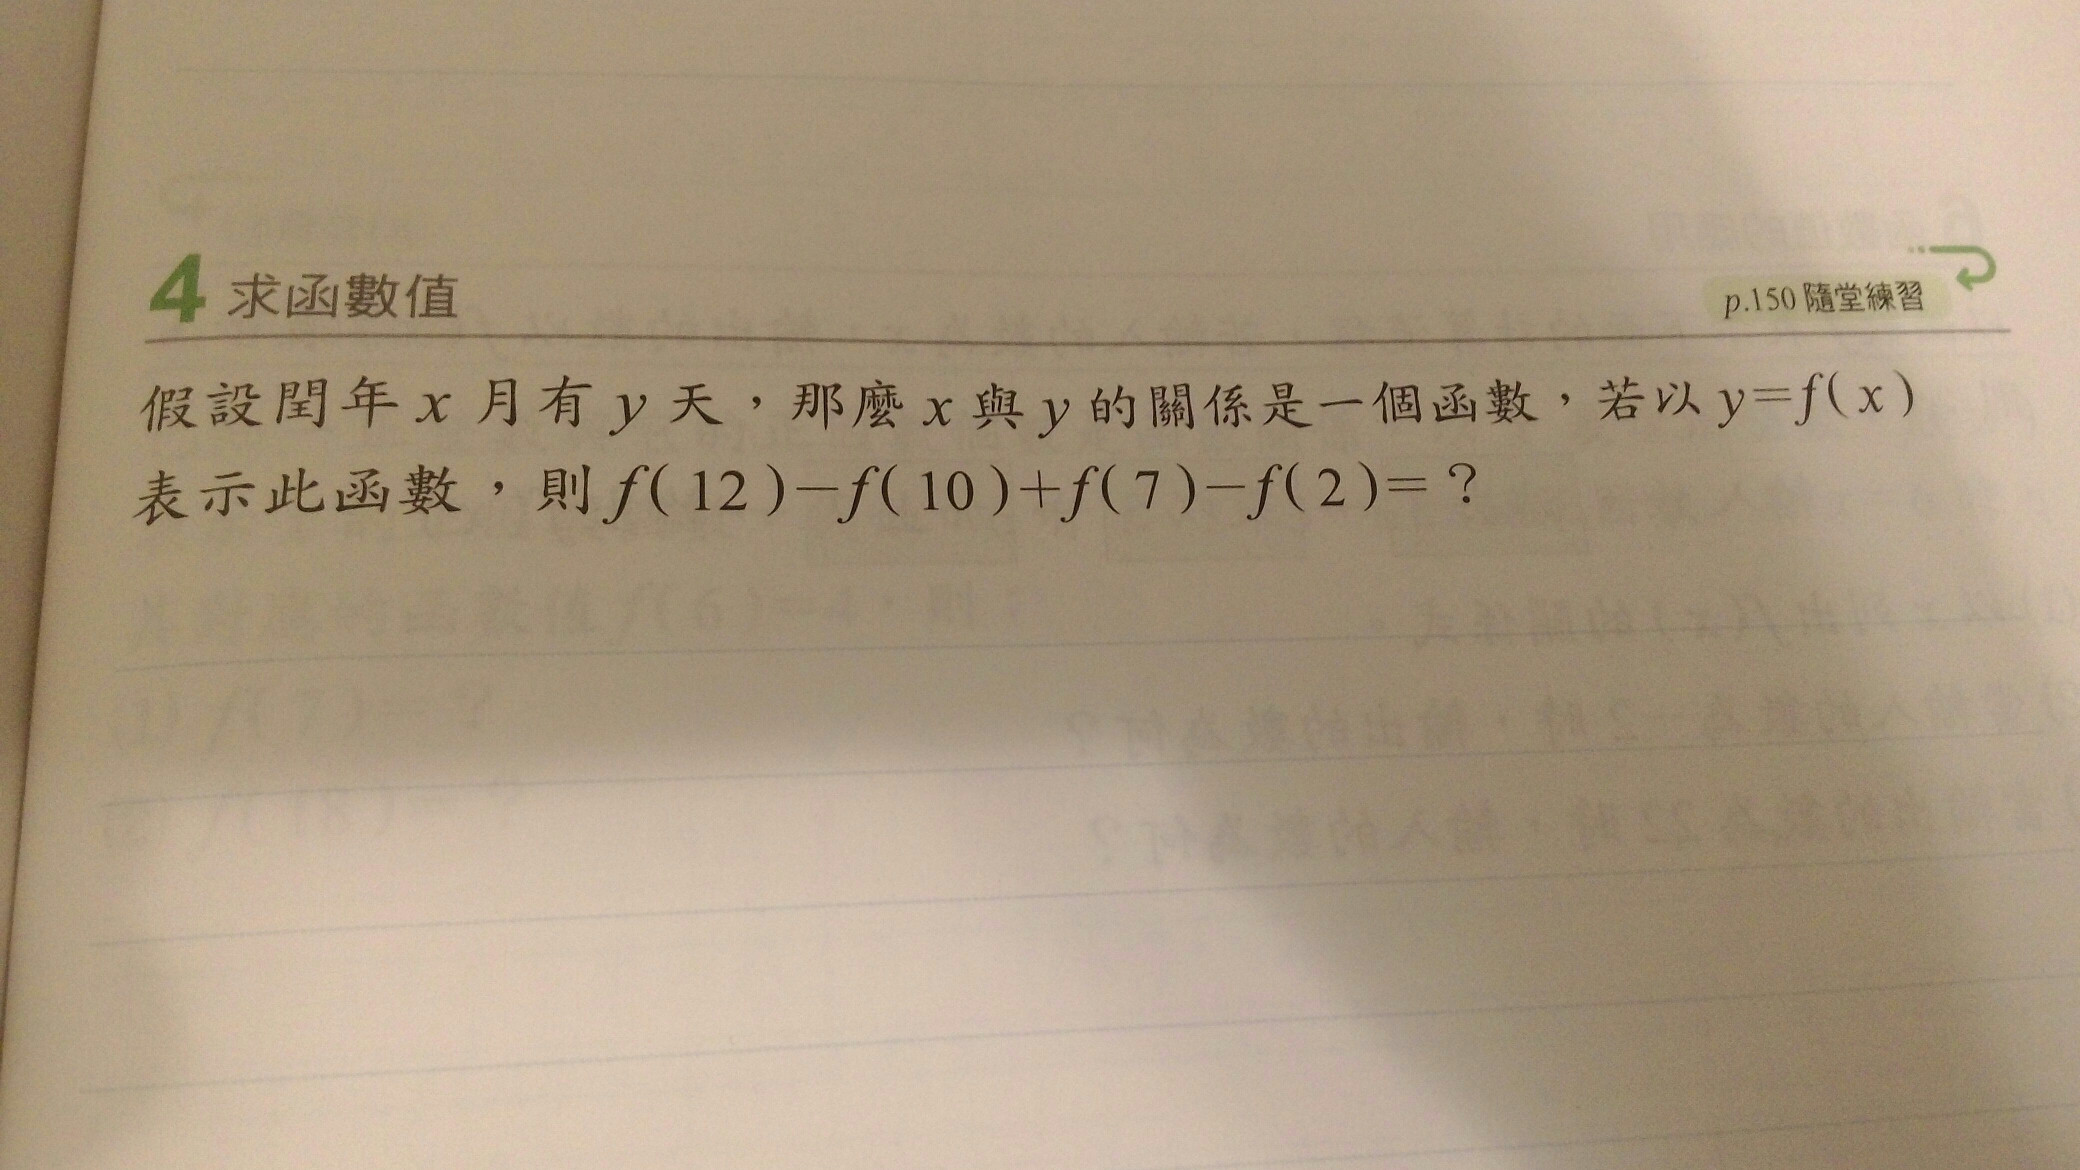 4 求函數值
p.150 隨堂練習
假設閏年 x 月有 y 天，那麼 x 與 y 的關係是一個函數，若以 y=f(x)
表示此函數，則 f(12)−f(10)+f(7)−f(2)=？